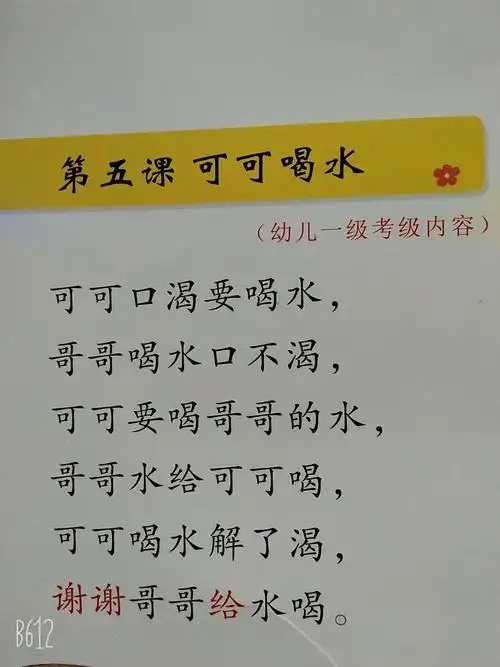 第五课 可可喝水
（幼儿一级考级内容）
可可口渴要喝水，
哥哥喝水口不渴，
可可要喝哥哥的水，
哥哥水给可可喝，
可可喝水解了渴，
谢谢哥哥给水喝。
B612